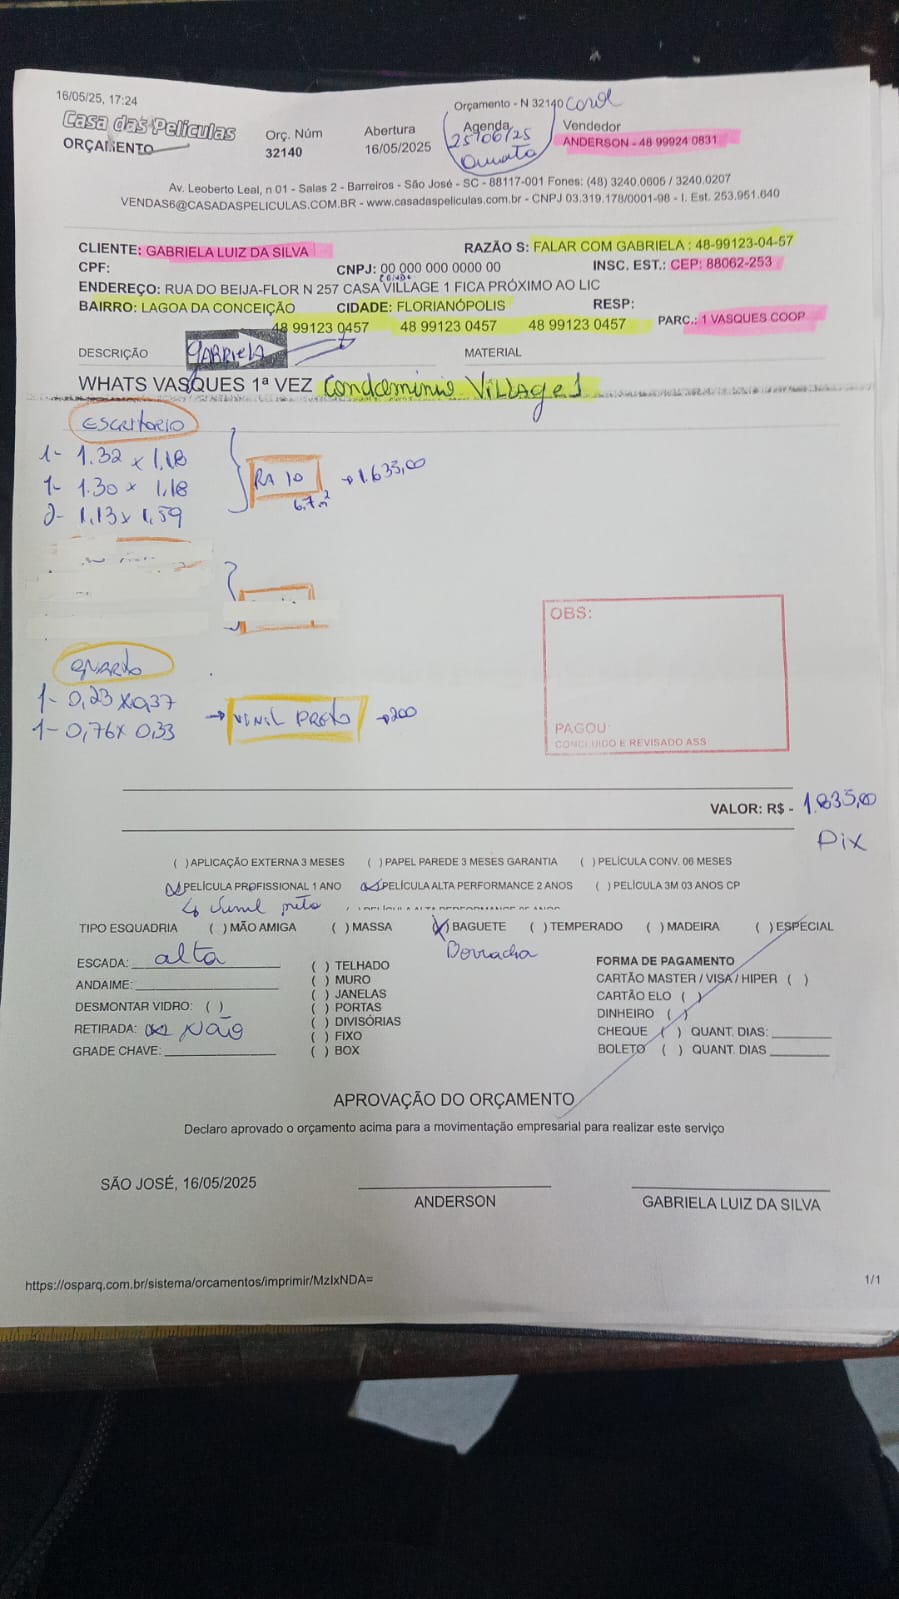 16/05/25, 17:24
Orçamento - N 32140
Casa das Películas
ORÇAMENTO
Orç. Núm
32140
Abertura
16/05/2025
Agenda
25/06/25
Quarta
Vendedor
ANDERSON - 48 99924 0831
Av. Leoberto Leal, n 01 - Salas 2 - Barreiros - São José - SC - 88117-001 Fones: (48) 3240.0605 / 3240.0207
VENDAS6@CASADASPELICULAS.COM.BR - www.casadaspeliculas.com.br - CNPJ 03.319.178/0001-98 - I. Est. 253.951.640
CLIENTE: GABRIELA LUIZ DA SILVA RAZÃO S: FALAR COM GABRIELA : 48-99123-04-57
CPF: CNPJ: 00 000 000 0000 00 INSC. EST.: CEP: 88062-253
ENDEREÇO: RUA DO BEIJA-FLOR N 257 CASA VILLAGE 1 FICA PRÓXIMO AO LIC
BAIRRO: LAGOA DA CONCEIÇÃO CIDADE: FLORIANÓPOLIS RESP:
48 99123 0457 48 99123 0457 48 99123 0457 PARC.: 1 VASQUES COOP
DESCRIÇÃO GABRIELA MATERIAL
WHATS VASQUES 1ª VEZ Condominio Village 1
ESCRITORIO
1- 1.32 x 1,18
1- 1.30 x 1,18
2- 1,13 x 1,59
RA 10 → 1.635,00
6,7 m²
Quarto
1- 0,23 x 0,37
1- 0,76 x 0,33
→ VINIL PRETO → 200
OBS:
PAGOU:
CONCLUIDO E REVISADO ASS
VALOR: R$ - 1.835,00
Pix
( ) APLICAÇÃO EXTERNA 3 MESES ( ) PAPEL PAREDE 3 MESES GARANTIA ( ) PELÍCULA CONV. 06 MESES
(x) PELÍCULA PROFISSIONAL 1 ANO (x) PELÍCULA ALTA PERFORMANCE 2 ANOS ( ) PELÍCULA 3M 03 ANOS CP
↳ vinil preto
TIPO ESQUADRIA ( ) MÃO AMIGA ( ) MASSA (x) BAGUETE ( ) TEMPERADO ( ) MADEIRA ( ) ESPECIAL
Borracha
ESCADA: alta
ANDAIME:
DESMONTAR VIDRO: ( )
RETIRADA: Não
GRADE CHAVE:
( ) TELHADO
( ) MURO
( ) JANELAS
( ) PORTAS
( ) DIVISÓRIAS
( ) FIXO
( ) BOX
FORMA DE PAGAMENTO
CARTÃO MASTER / VISA / HIPER ( )
CARTÃO ELO ( )
DINHEIRO ( )
CHEQUE ( ) QUANT. DIAS:
BOLETO ( ) QUANT. DIAS
APROVAÇÃO DO ORÇAMENTO
Declaro aprovado o orçamento acima para a movimentação empresarial para realizar este serviço
SÃO JOSÉ, 16/05/2025
ANDERSON
GABRIELA LUIZ DA SILVA
https://osparq.com.br/sistema/orcamentos/imprimir/MzIxNDA=
1/1